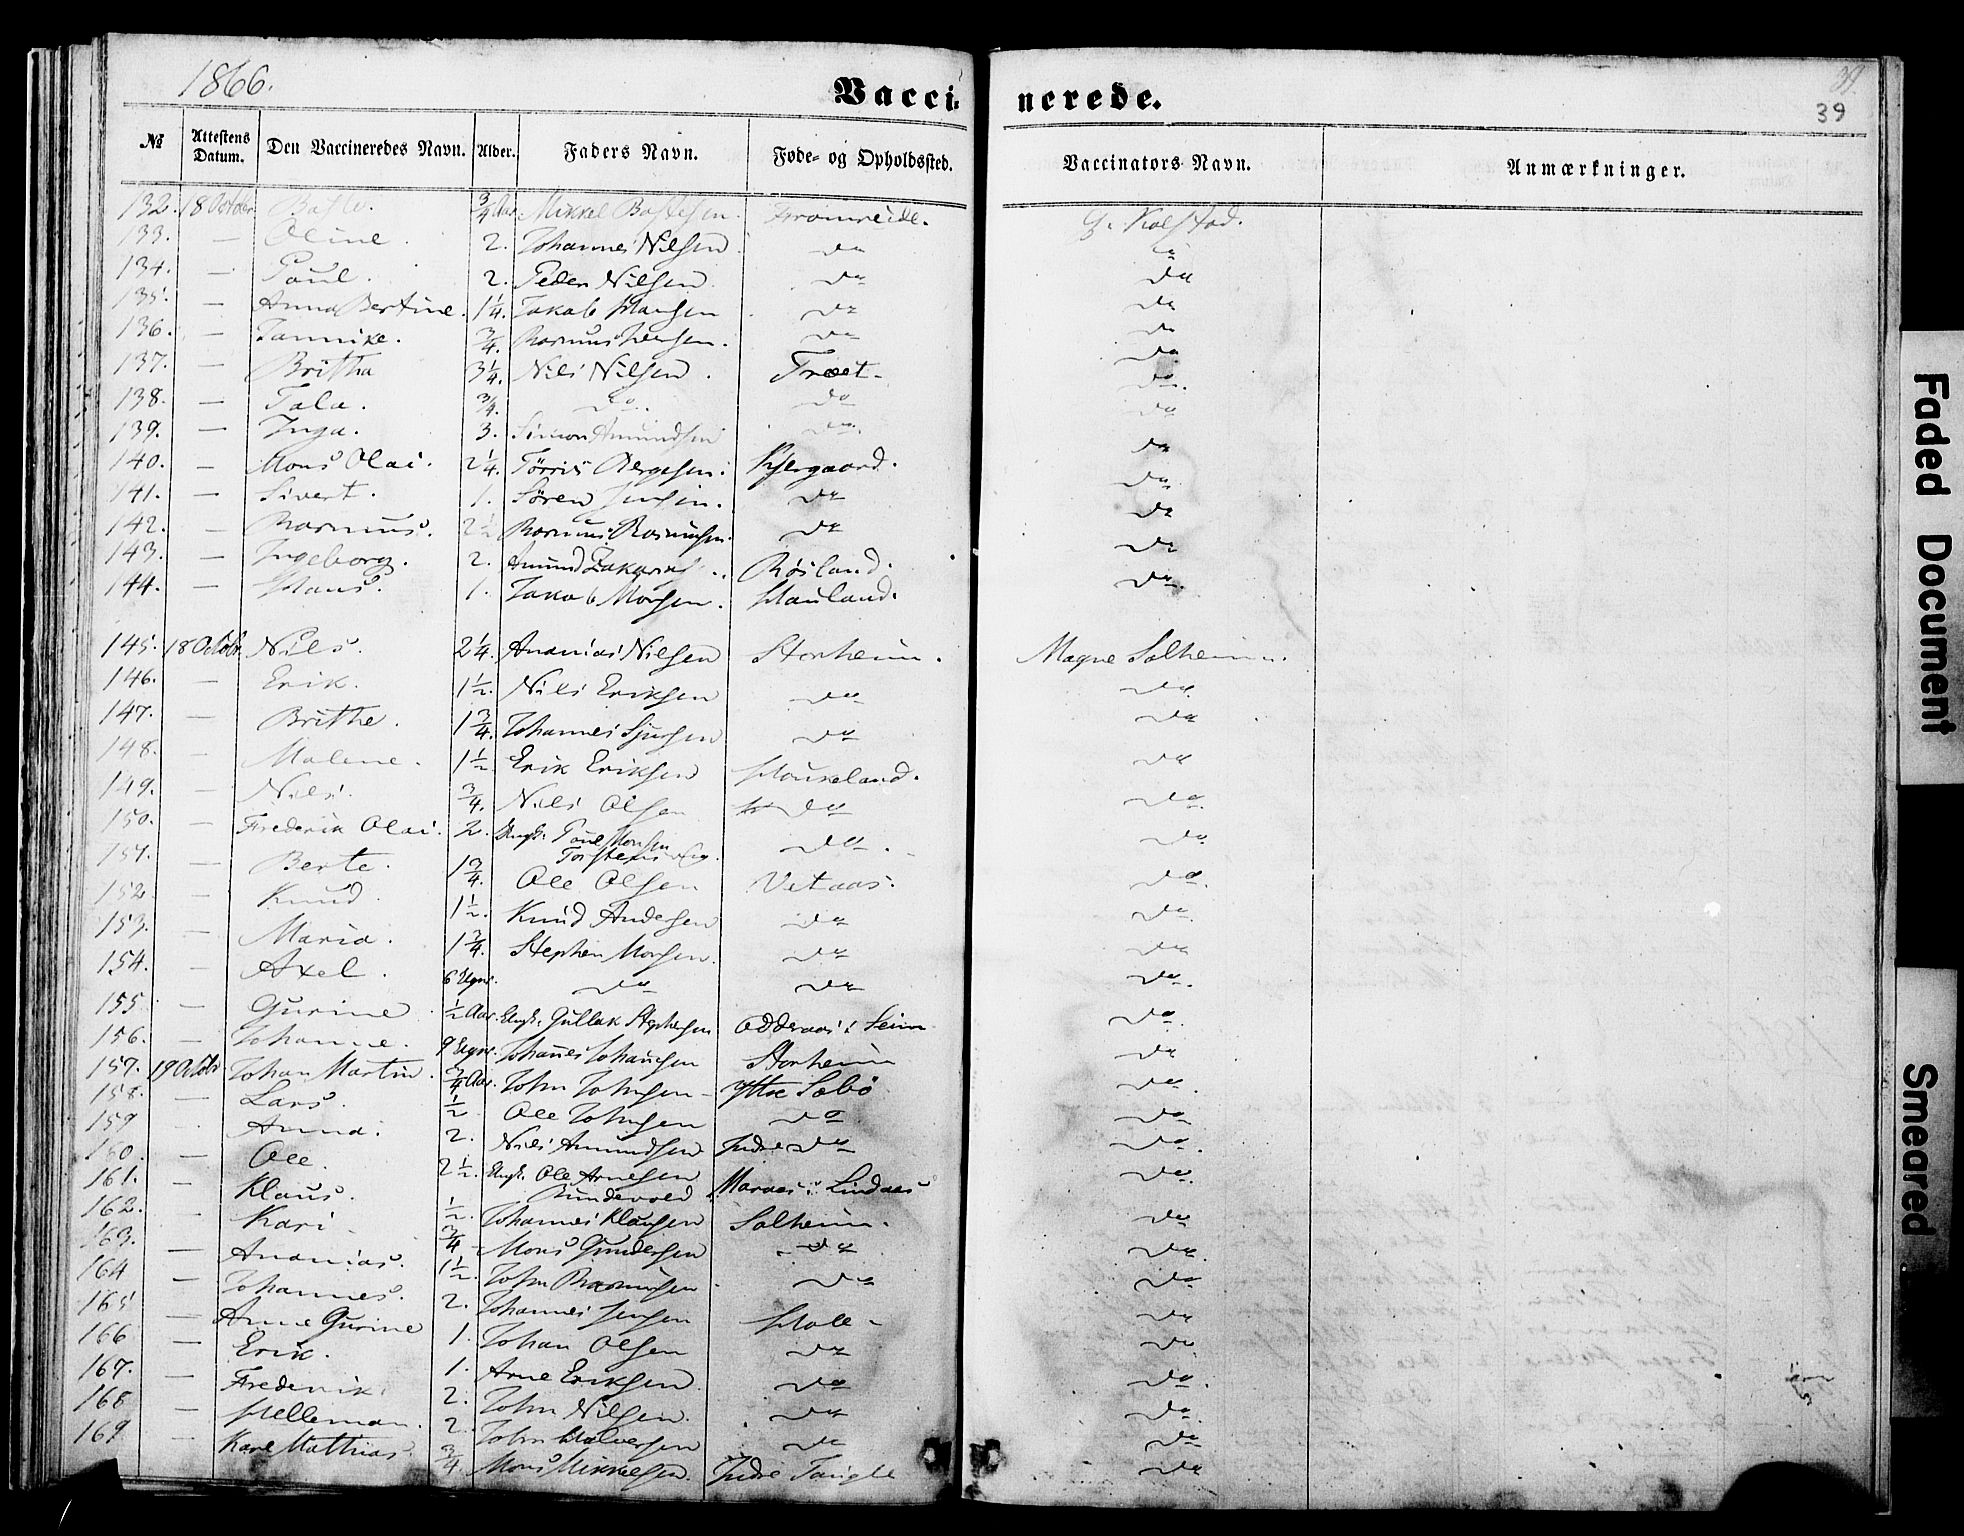 1866.
Vacci=
nerede.
39.
39
№ Attestens Datum. Den Vaccineredes Navn. Alder. Faders Navn. Føde- og Opholdssted. Vaccinators Navn. Anmærkninger.
132. 18 Octobr ¾ Aar Mikkel Fromreide. Kolstad.
133. — Oline. 2. Johannes Nilsen. do
134. — Poul. 2. Peder Nilsen. do do
135. — Anna Bertine. 1¼. Jakob Hansen do do
136. — Jannike. ¾. Rasmus do do
137. — Britha 3¼. Nils Nilsen. Træet. do
138. — ¾. do. do do.
139. — Inga. 3. Simon Amundsen do. do
140. — Mons Olai. 2¼. Børgesen. Kjergaard. do
141. — Sivert. 1. Sören Jensen. do do
142. — Rasmus. 2½ Rasmus Rasmussen. do do
143. — Ingeborg. 2. Amund Røsland. do
144. — Hans. 1. Jakob Monsen. Hauland. do.
145. 18 Octobr. Nils. 2¼. Ananias Nilsen Storheim. Magne Solheim.
146. — Erik. 1½. Nils Eriksen do do
147. — Brithe. 1¾. Johannes Sjursen do do
148. — Malene. 1½ Erik Eriksen Houkeland. do
149. — Nils. ¾. Nils Olsen do do.
150. — Frederik Olai. 2. Ungk. Poul Monsen do. do
151. — Berte. 1¾. Ole Olsen Vetaas. do.
152. — Knud. 1½. Knud Andersen do do.
153. — Maria. 1¾. Stephen Monsen. do do
154. — Axel. 6 Ugnr. do do do.
155. — Gurine ½ Aar. Ungk. Gullak Stephensen Oddraas i Seim do.
156. — Johanne. 9 Ugnr. Johannes Johansen Storheim do
157. 19 Octobr Johan Martin. ¾ Aar. John Johnsen Yttre Sæbö do.
158. — Lars. ½ Ole Johnsen do do
159 Anna. 2. Nils Amundsen Indre do do.
160. — Ole. 2½. Ungk. Ole Arnesen i Lindaas do.
161. — Klaus. ½. Johannes Klausen Solheim. do
162. — Kari ¾ Mons Gundersen do do.
163. — Ananias. 1½. John Rasmusen do do
164 — Johannes. 2. Johannes Jensen Hole do
165 — Anne Gurine 1. Johan Olsen do do
166 — Erik. 1. Arne Eriksen. do do.
167. — Frederik. 2. John Nilsen. do do.
168 — Helleman. 2. John Halversen do do
169 — Karl Mathias. ¾ Mons Mikkelsen. Indre do
Faded Document
Smeared